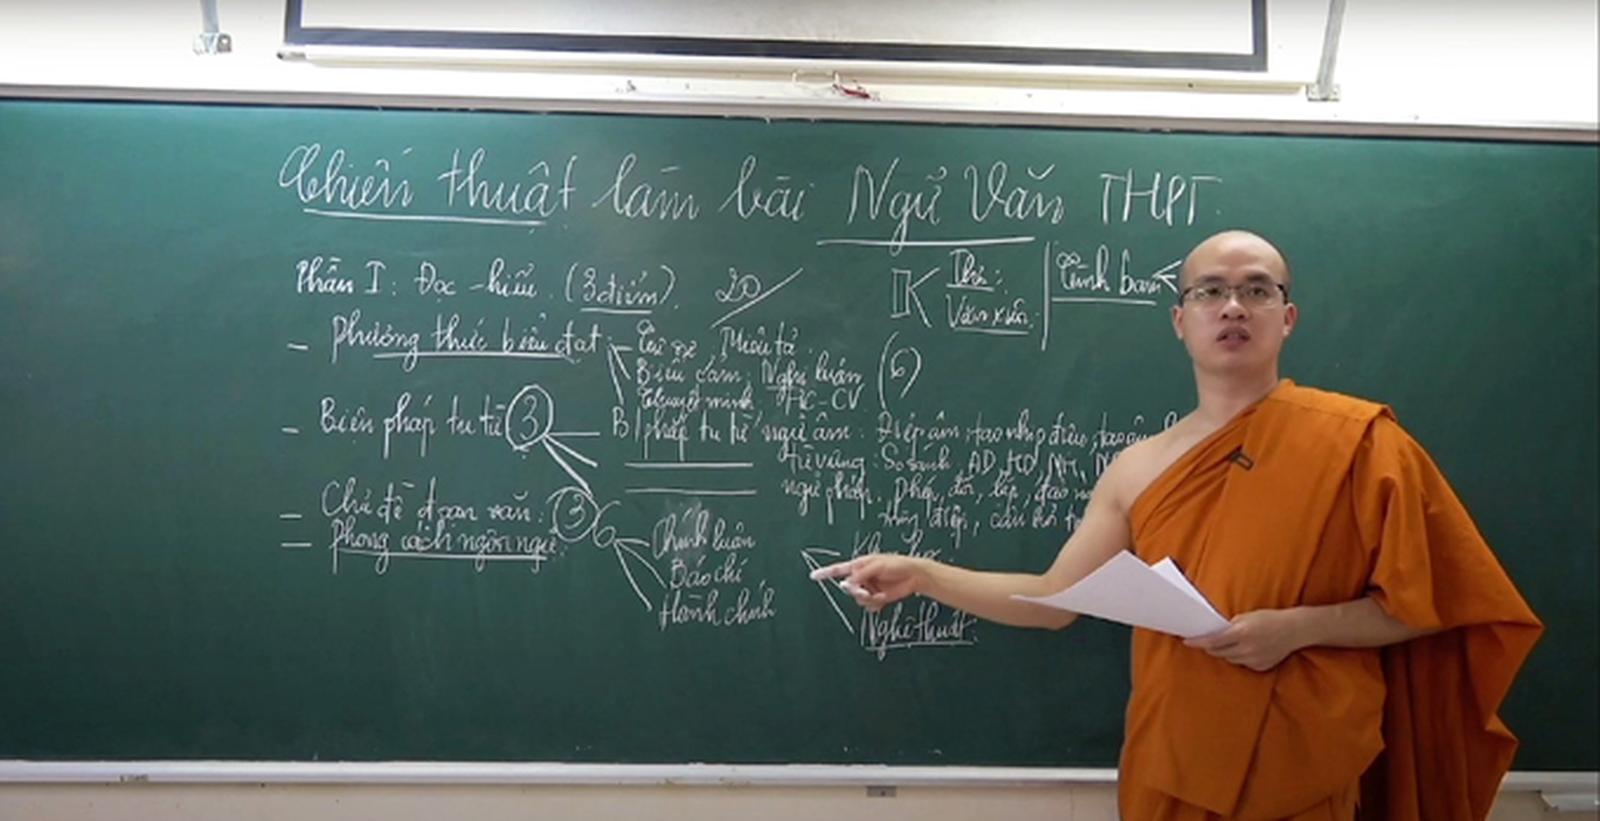 Chiến thuật làm bài Ngữ Văn THPT.
Phần I: Đọc - hiểu. (3 điểm). 20
II Thơ:
Văn xuôi.
- Phương thức biểu đạt: Tự sự Miêu tả
Biểu cảm, Nghị luận (6)
Thuyết minh HC-CV
- Biện pháp tu từ (3) B/pháp tu từ ngữ âm: Điệp âm, tạo nhịp điệu, tạo âm
Từ vựng: So sánh, AD, HD, NH,
ngữ pháp. Phép, đối, lặp, đảo
điệp, câu hỏi
- Chủ đề đoạn văn: (3)
- Phong cách ngôn ngữ: 6 Chính luận
Báo chí
Hành chính
Nghệ thuật: